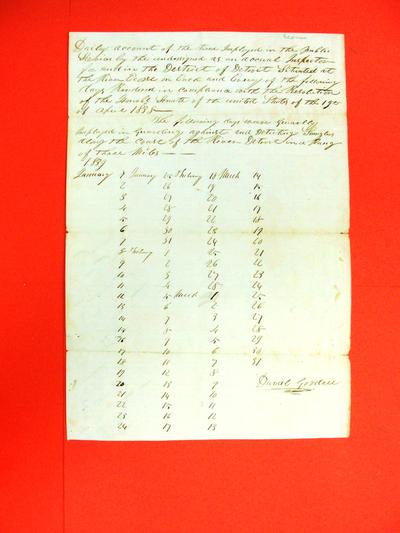 Daily account of the time Imployed in the Public
Servis by the undersigned as an accional Inspector
for and in the District of Detroit Situated at
the River Ecorse on Each and Every of the following
days Rendered in compliance with the Resolution
of the Honorbl Senate of the united States of the 19th
of April 1838
The following days ware Generally
Imployed in Guarding against and Detecting Smuglers
along the coast of the River Detroit
of three Miles
1839
January 1 January 25 Febuary 18 March 14
2 26 19 15
3 27 20 16
4 28 21 17
5 29 22 18
6 30 23 19
7 31 24 20
8 Febuary 1 25 21
9 2 26 22
10 3 27 23
11 4 28 24
12 5 March 1 25
13 6 2 26
14 7 3 27
15 8 4 28
16 9 5 29
17 10 6 30
18 11 7 31
19 12 8
20 13 9
21 14 10
22 15 11
23 16 12
24 17 13
Daniel Goodell